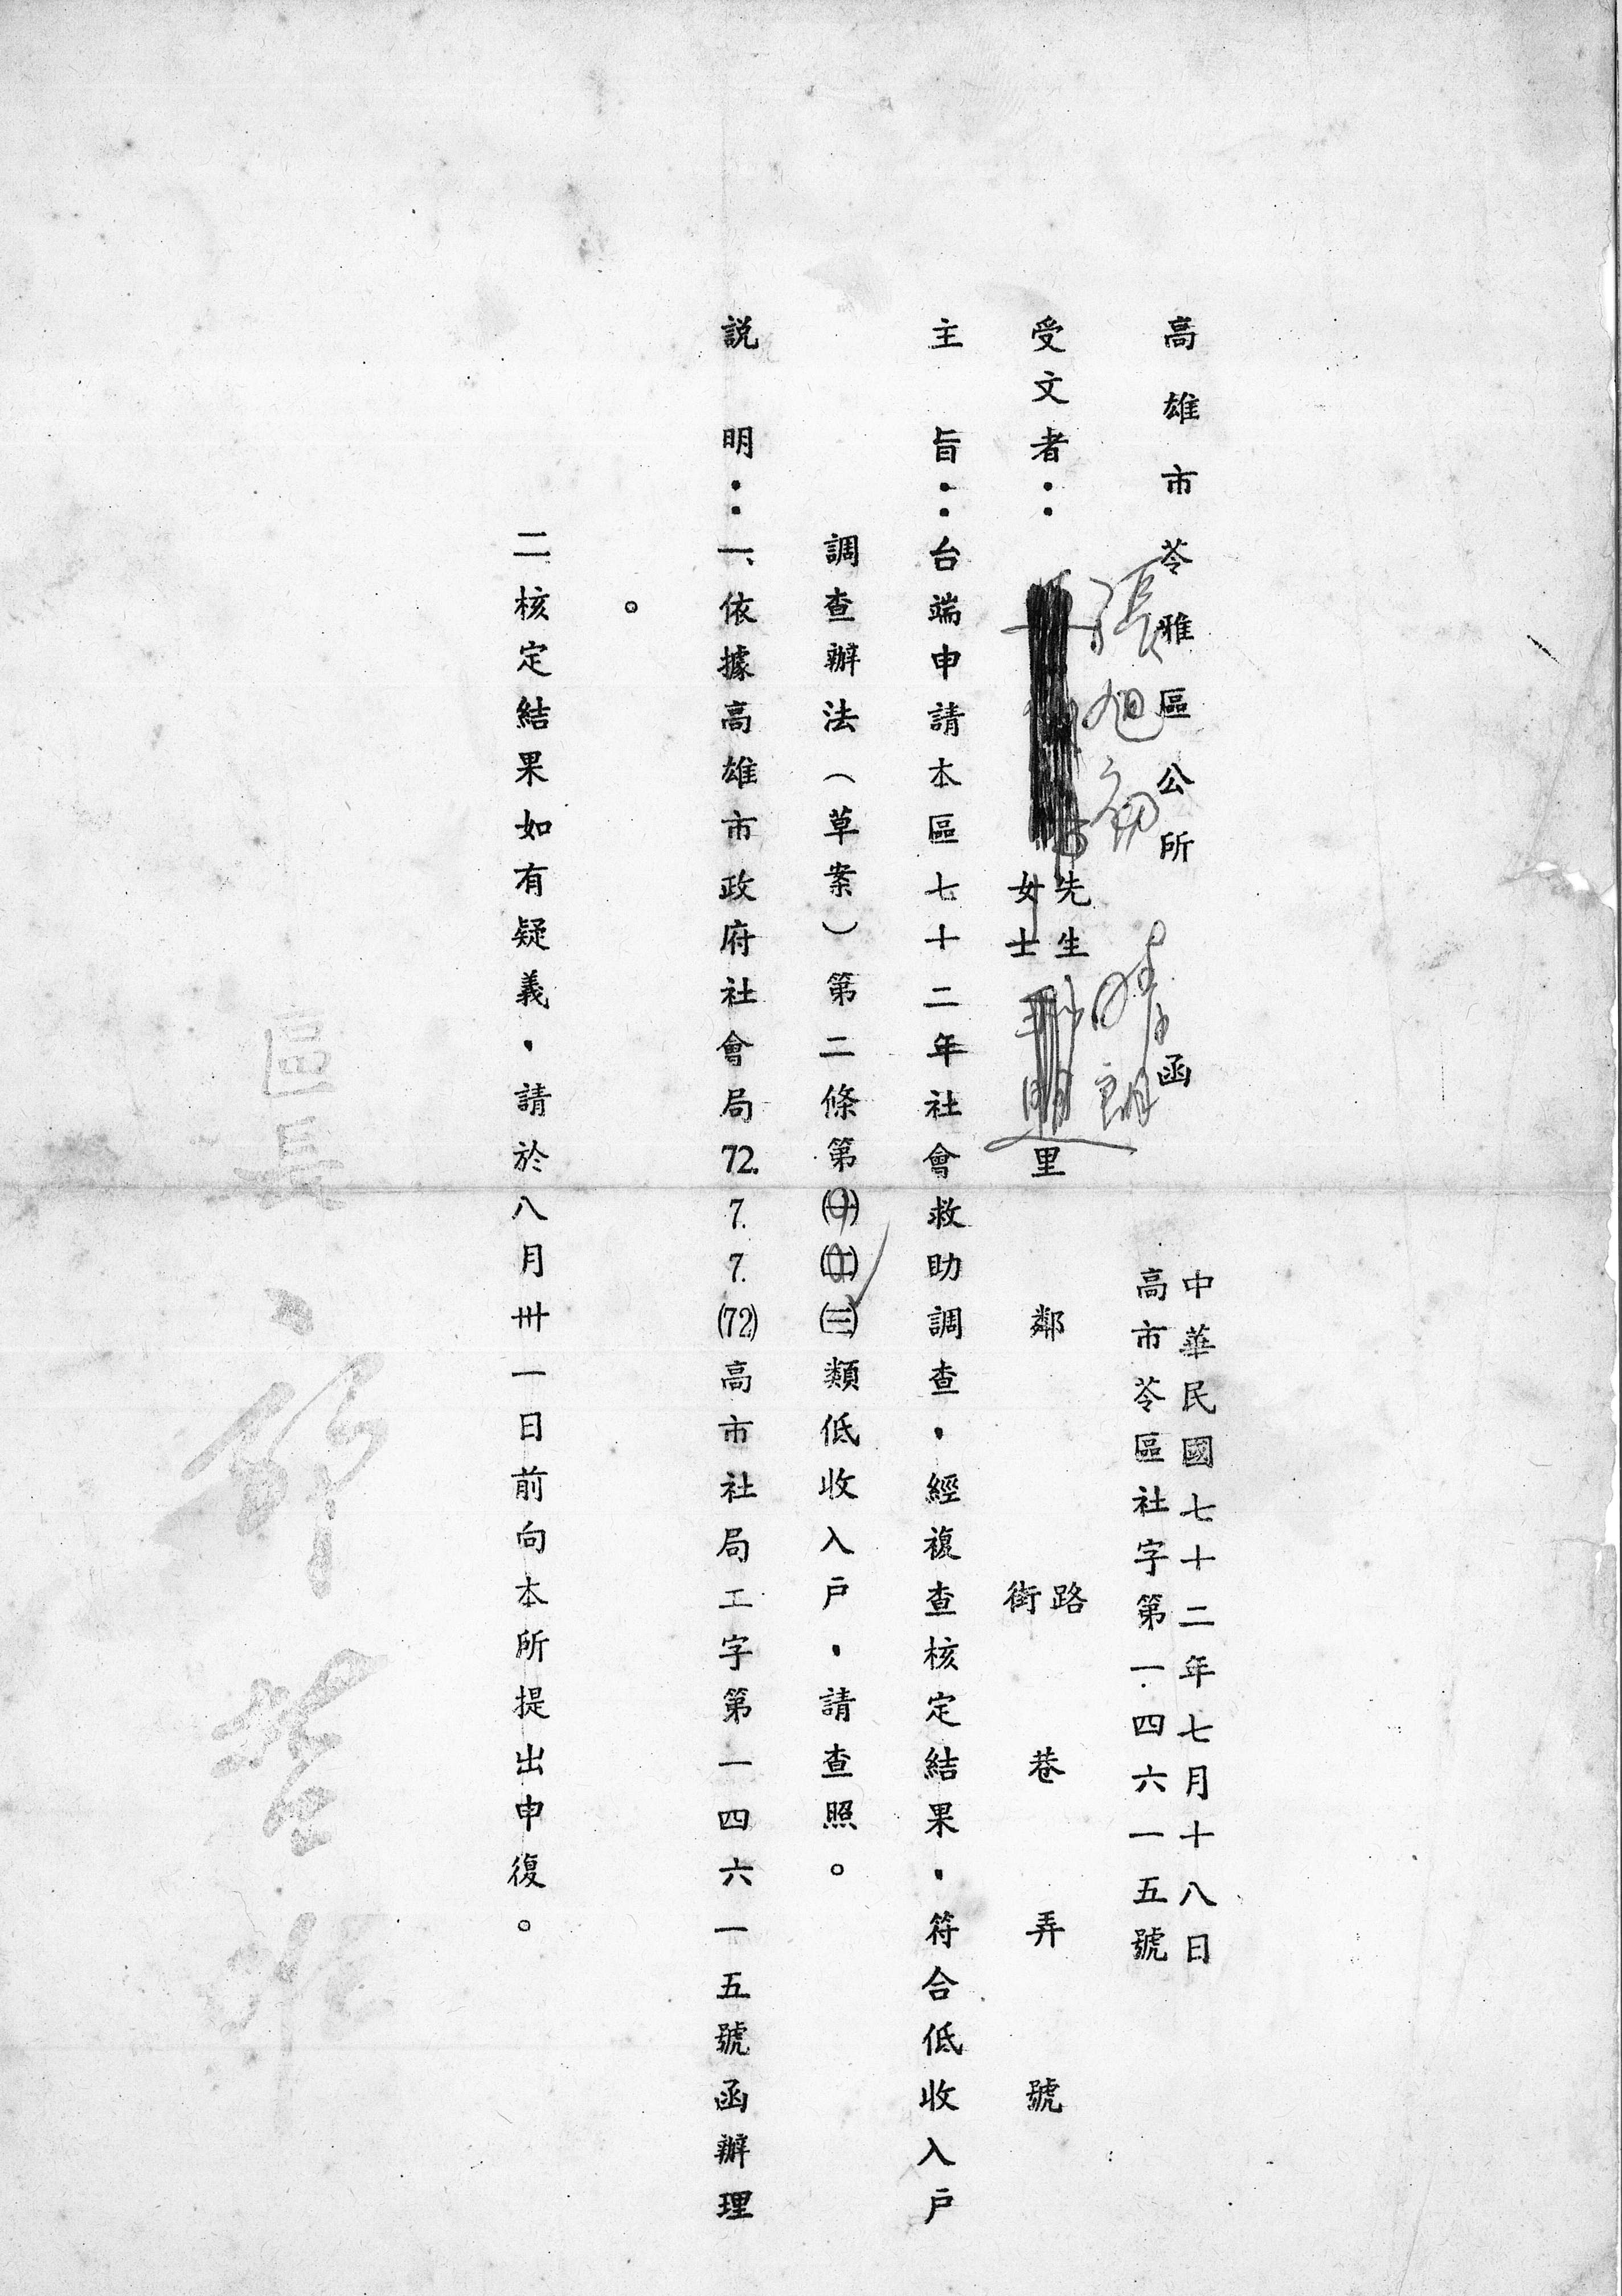 高雄市苓雅區公所 函
中華民國七十二年七月十八日
高市苓區社字第一四六一五號
張旭初
受文者： 先生 女士 里 鄰 路 街 巷 弄 號
主 旨：台端申請本區七十二年社會救助調查，經複查核定結果，符合低收入戶
調查辦法（草案）第二條第㈠㈡㈢類低收入戶，請查照。
説 明：一、依據高雄市政府社會局72.7.7.(72)高市社局工字第一四六一五號函辦理
。
二核定結果如有疑義，請於八月卅一日前向本所提出申復。
區長